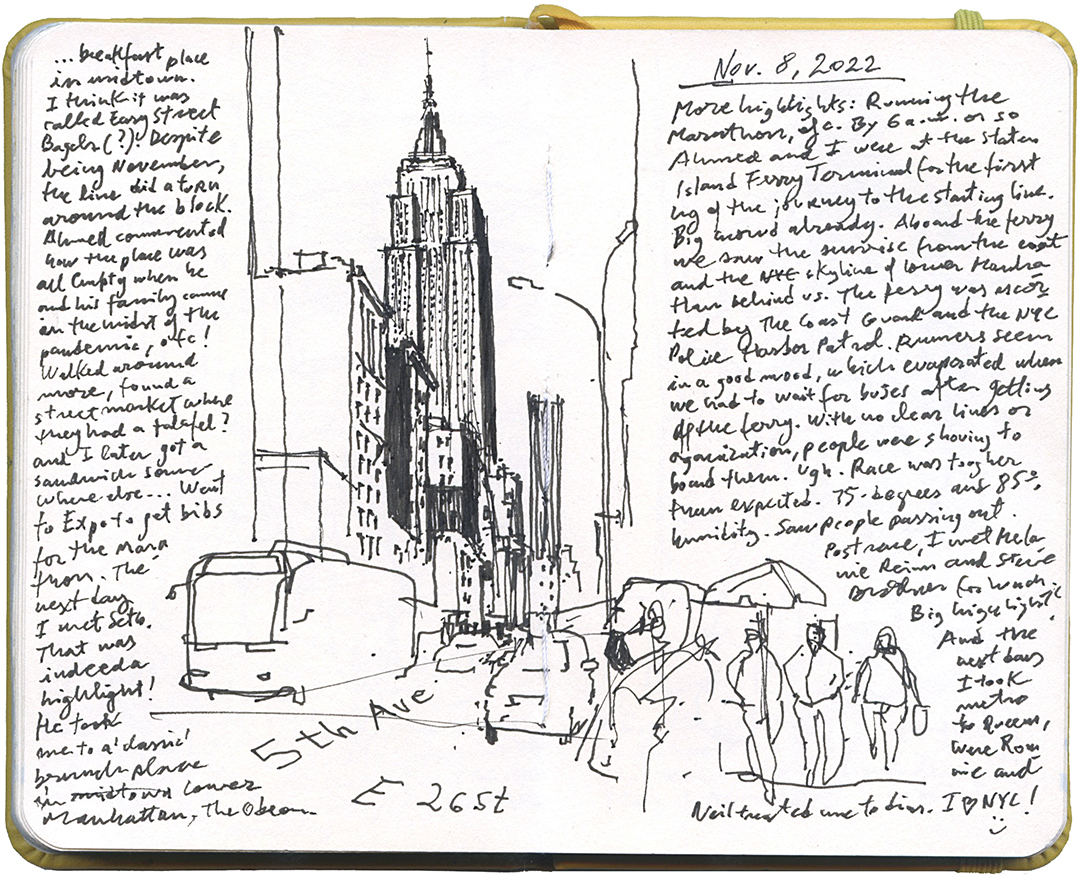 ...breakfast place
in midtown.
I think it was
called Easy Street
Bagels (?)! Despite
being November,
the line did a turn
around the block.
Ahmed commented
how the place was
all empty when he
and his family came
in the midst of the
pandemic, ofc!
Walked around
more, found a
street market where
they had a falafel?
and I later got a
sandwich some-
where else... Went
to Expo to get bibs
for the Mara
thon. The
next day
I met Seth.
That was
indeed a
highlight!
He took
me to a 'classic'
brunch place
in midtown Lower
Manhattan, The Odeon.
5th Ave
E 26 St
Nov. 8, 2022
More highlights: Running the
Marathon, ofc. By 6 a.m. or so
Ahmed and I were at the Staten
Island Ferry Terminal for the first
leg of the journey to the starting line.
Big crowd already. Aboard the ferry
we saw the sunrise from the east
and the NYC skyline of lower Manha
ttan behind us. The ferry was escor
ted by The Coast Guard and the NYC
Police Harbor Patrol. Runners seem
in a good mood, which evaporated when
we had to wait for buses after getting
off the ferry. With no clear lines or
oganization, people were shoving to
board them. Ugh. Race was tougher
than expected. 75 degrees and 85%
humidity. Saw people passing out.
Post race, I met Mela
nie Reim and Steve
for lunch.
Big highlight!
And the
next days
I took
metro
to Queens,
were Ron
nie and
Neil treated me to dinner. I ♡ NYC!